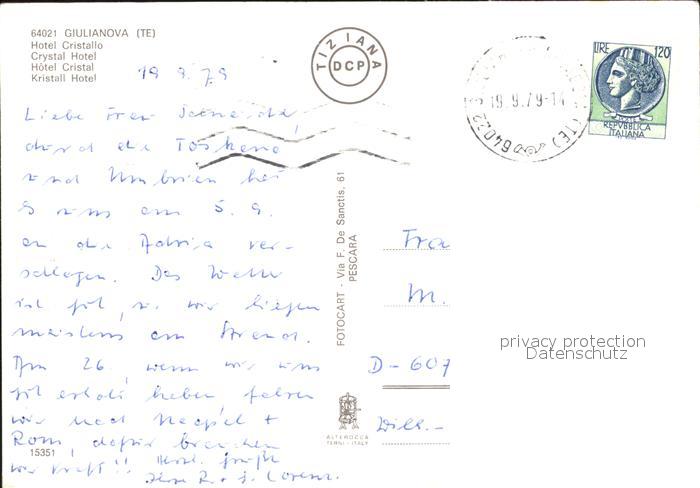 64021 GIULIANOVA (TE)
Hotel Cristallo
Crystal Hotel
Hôtel Cristal
Kristall Hotel
TIZIANA
DCP
19.9.79-14
64022 (TE)
LIRE 120
POSTE
REPVBBLICA
ITALIANA
19 9.79
Liebe Frau
durch die Toskana
und Umbrien hat
es uns am 5. 9.
an die Adria ver-
schlagen. Das Wetter
ist gut, u. wir liegen
meistens am Strand.
Am 26. wenn wir uns
gut erholt haben fahren
wir nach Neapel +
Rom, dafür brauchen
wir Kraft!! Herzl. Grüße
Ihre R. + J. Lorenz.
15351
FOTOCART - Via F. De Sanctis, 61
PESCARA
ALTEROCCA
TERNI - ITALY
Frau
M.
D-607
privacy protection
Datenschutz